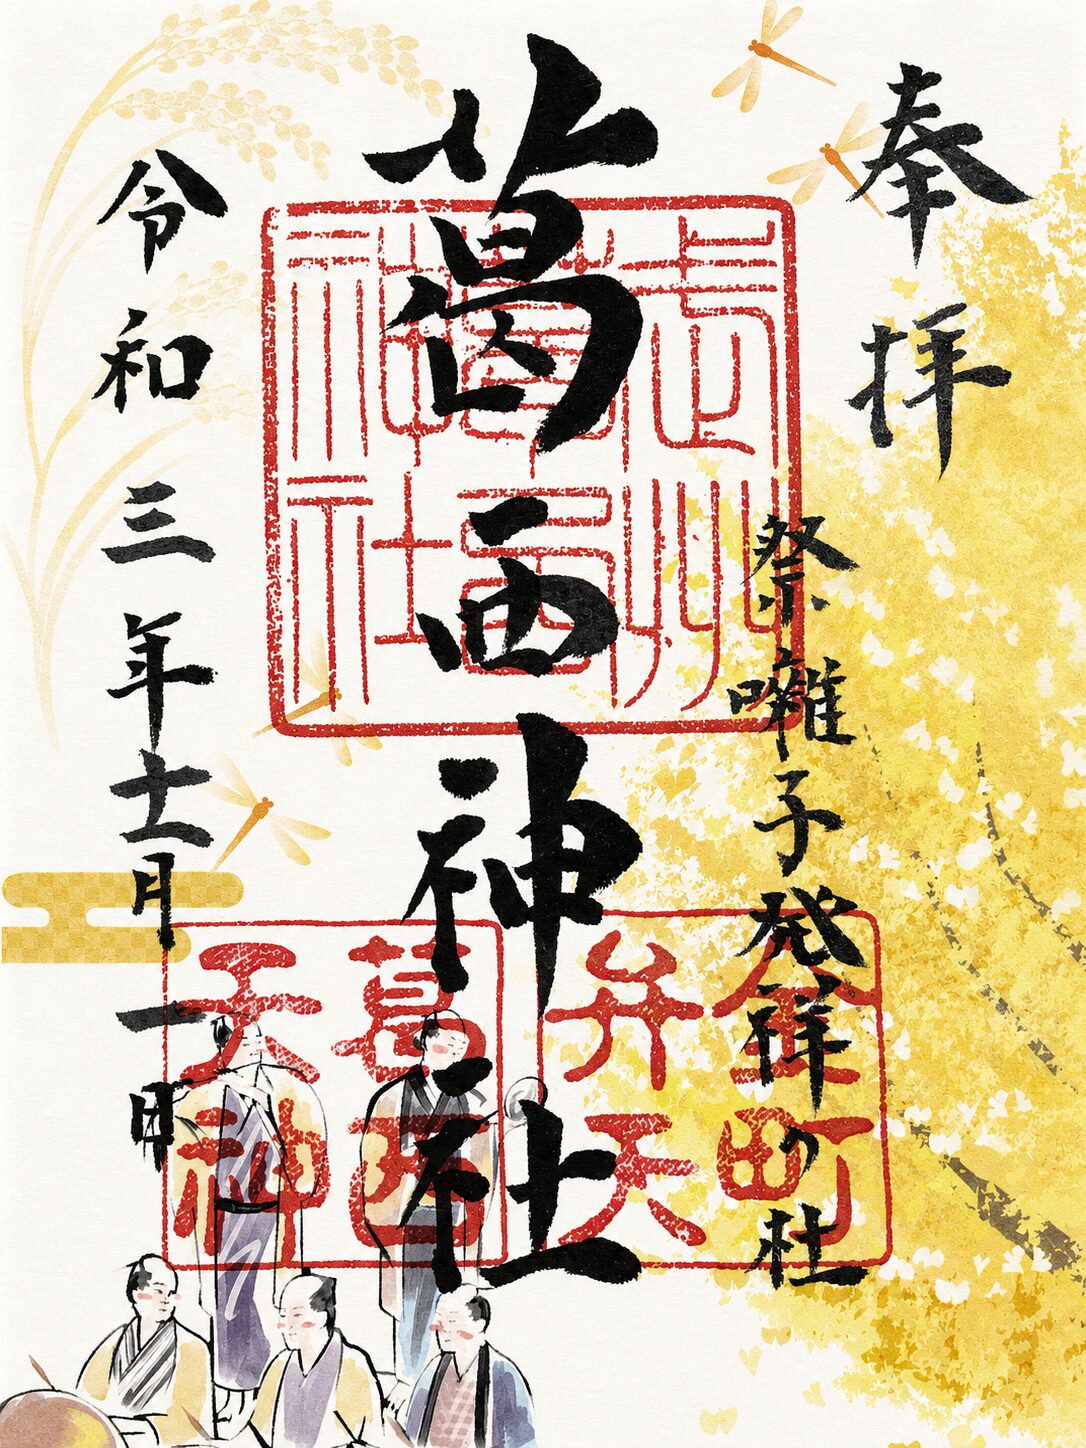 奉拝
祭囃子発祥の杜
葛西神社
令和三年十一月一日
武州
葛西
神社
金町
弁天
葛西
天神